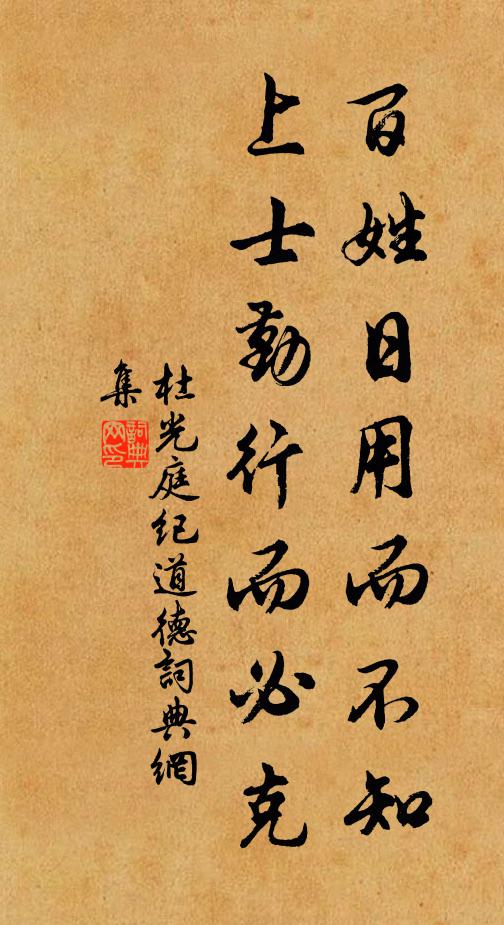 百姓日用而不知
上士勤行而必克
杜光庭紀道德詞典網
集
詞典網印